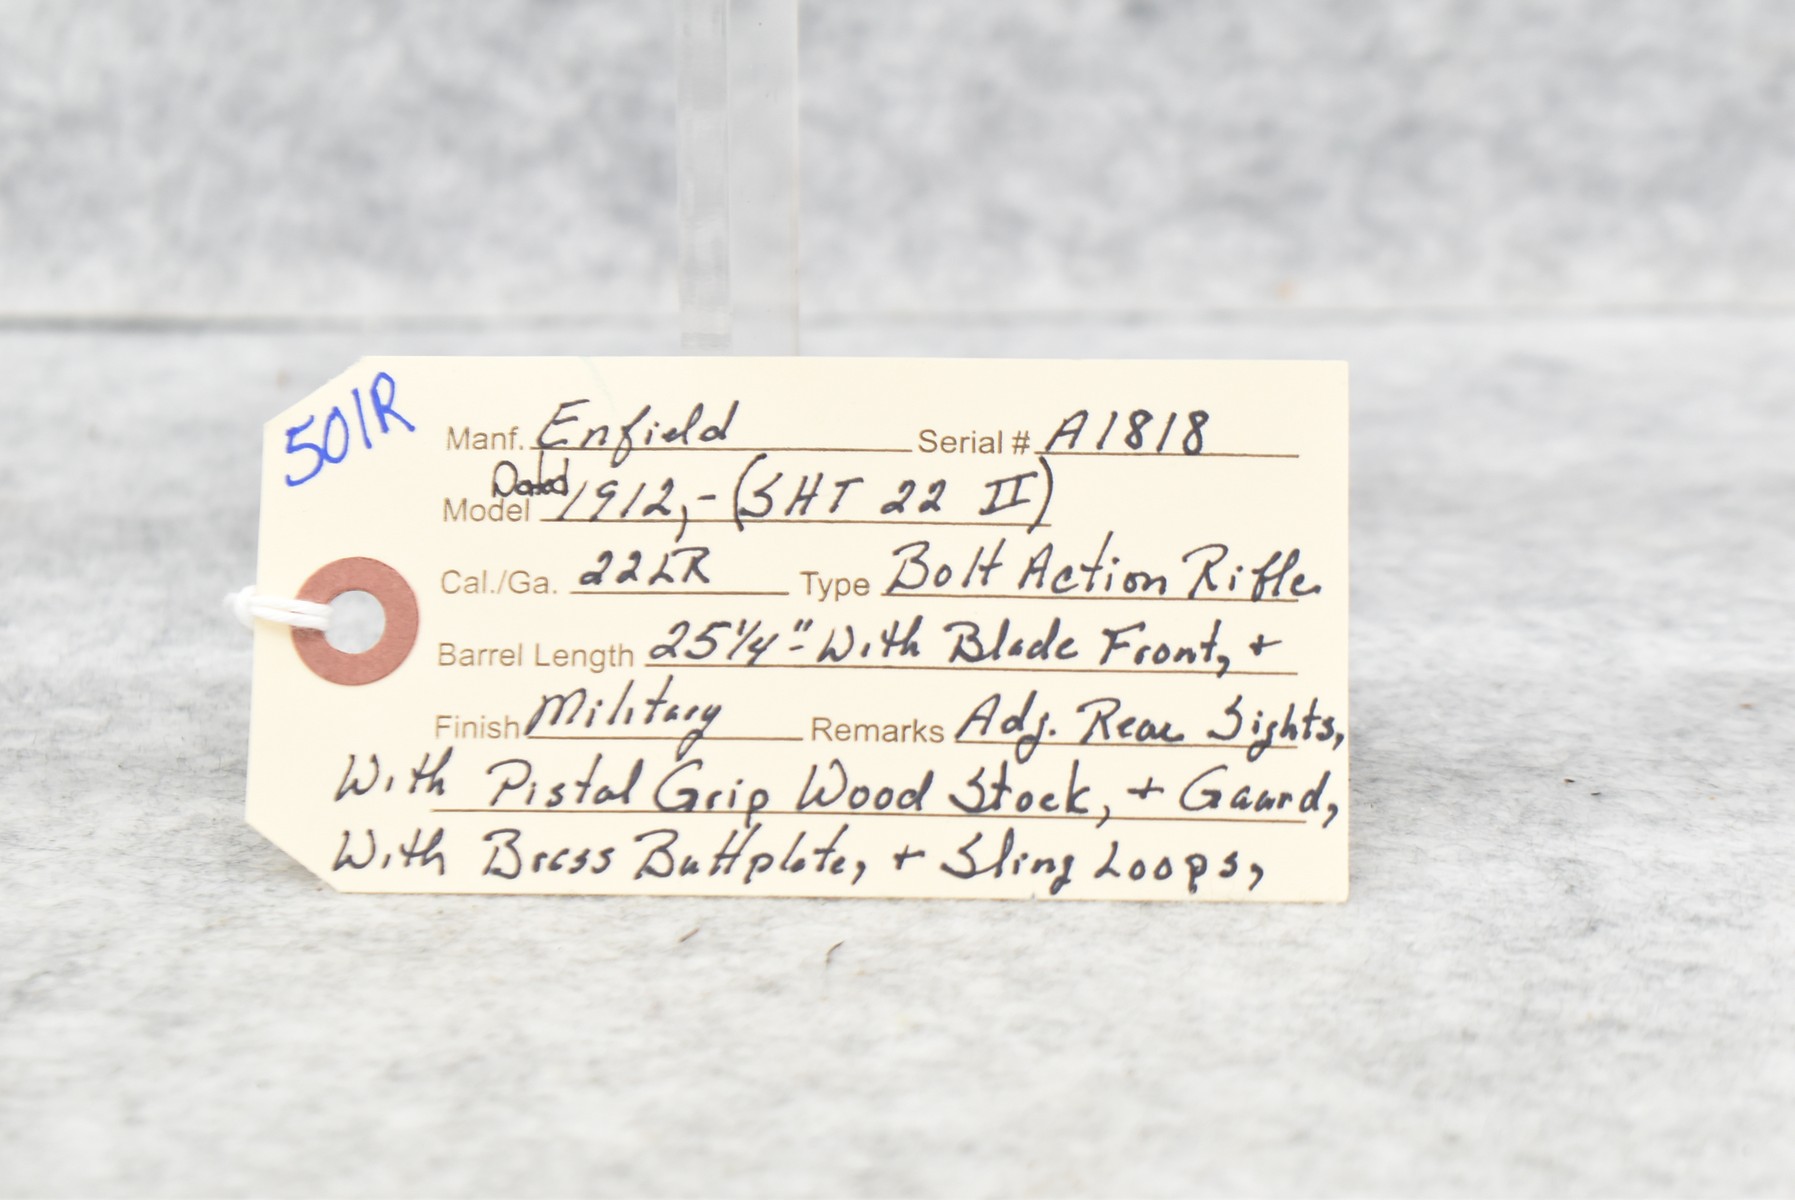 501R
Manf. Enfield Serial # A1818
Dated
Model 1912,-(SHT 22 II)
Cal./Ga. 22LR Type Bolt Action Rifle
Barrel Length 25 1/4"-With Blade Front, +
Finish Military Remarks Adj. Rear Sights,
With Pistol Grip Wood Stock, + Gaurd,
With Brass Buttplate, + Sling Loops,